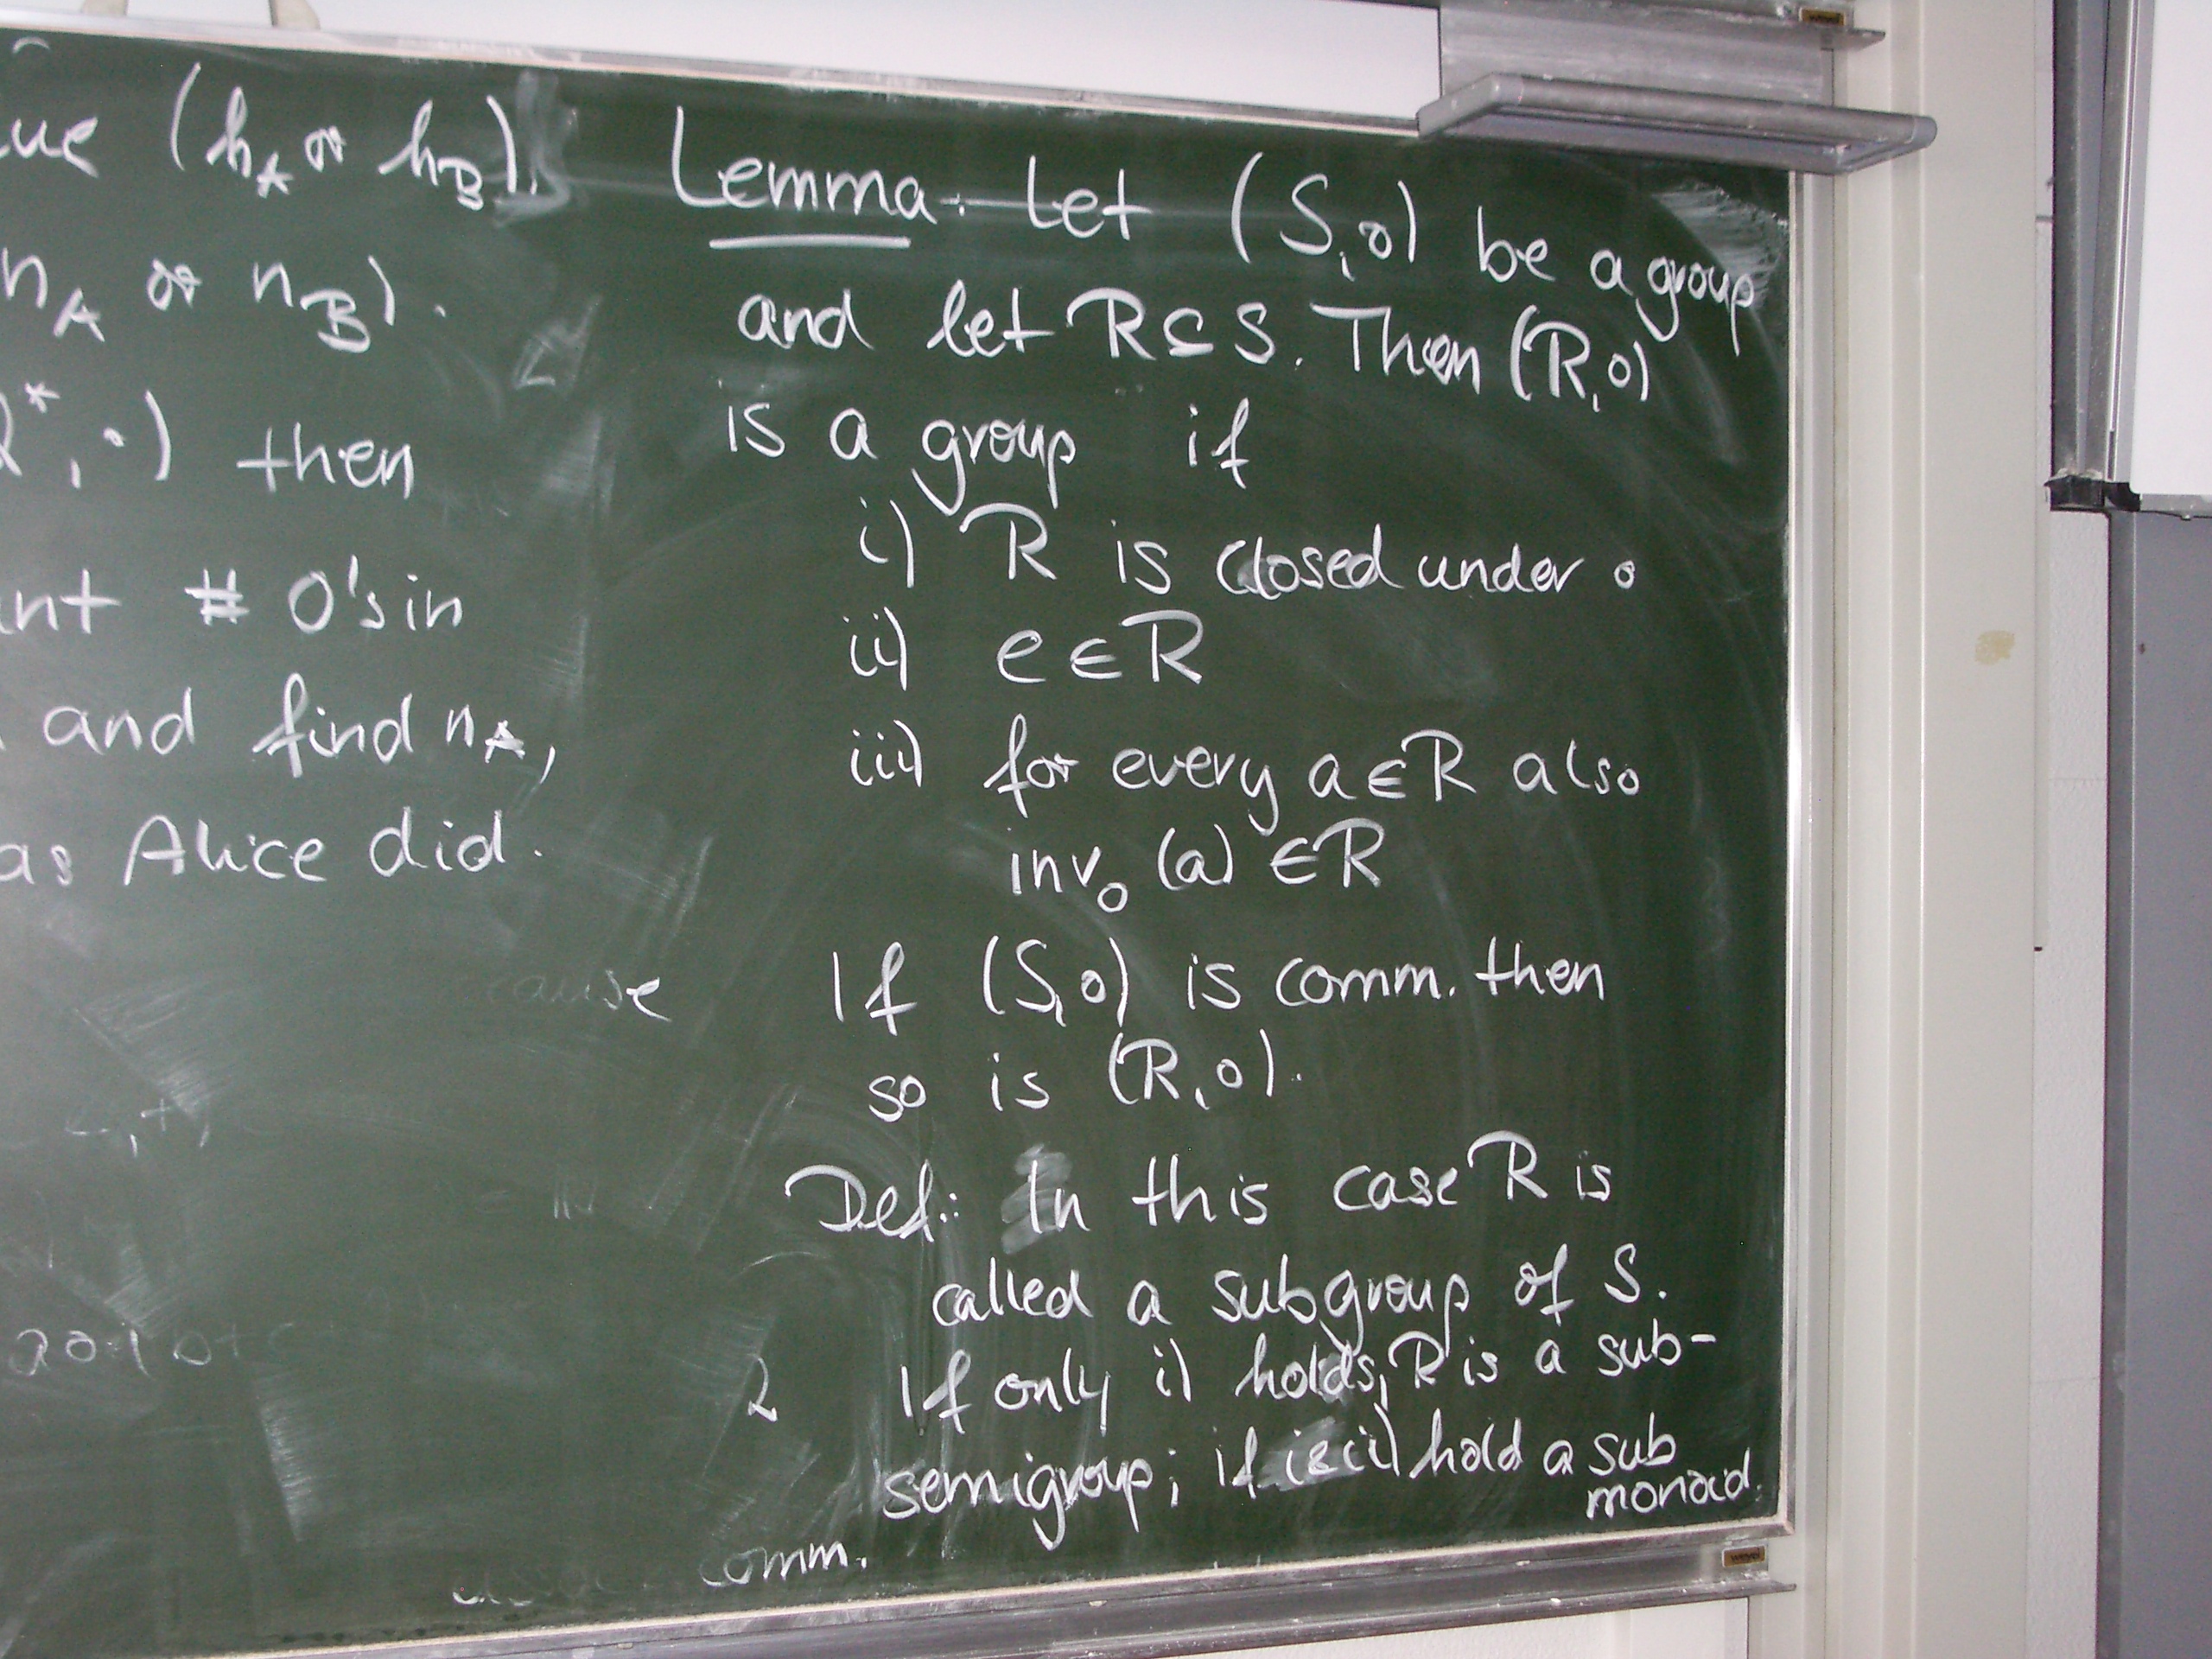 (hA or hB).
nA or nB).
*, ·) then
# 0's in
and find nA,
as Alice did.
cause
Lemma: Let (S,∘) be a group
and let R⊆S. Then (R,∘)
is a group if
i) R is closed under ∘
ii) e∈R
iii) for every a∈R also
inv∘ (a) ∈R
If (S,∘) is comm. then
so is (R,∘).
Def.: In this case R is
called a subgroup of S.
2 If only i) holds, R is a sub-
semigroup; if i&ii) hold a sub
monoid.
comm.